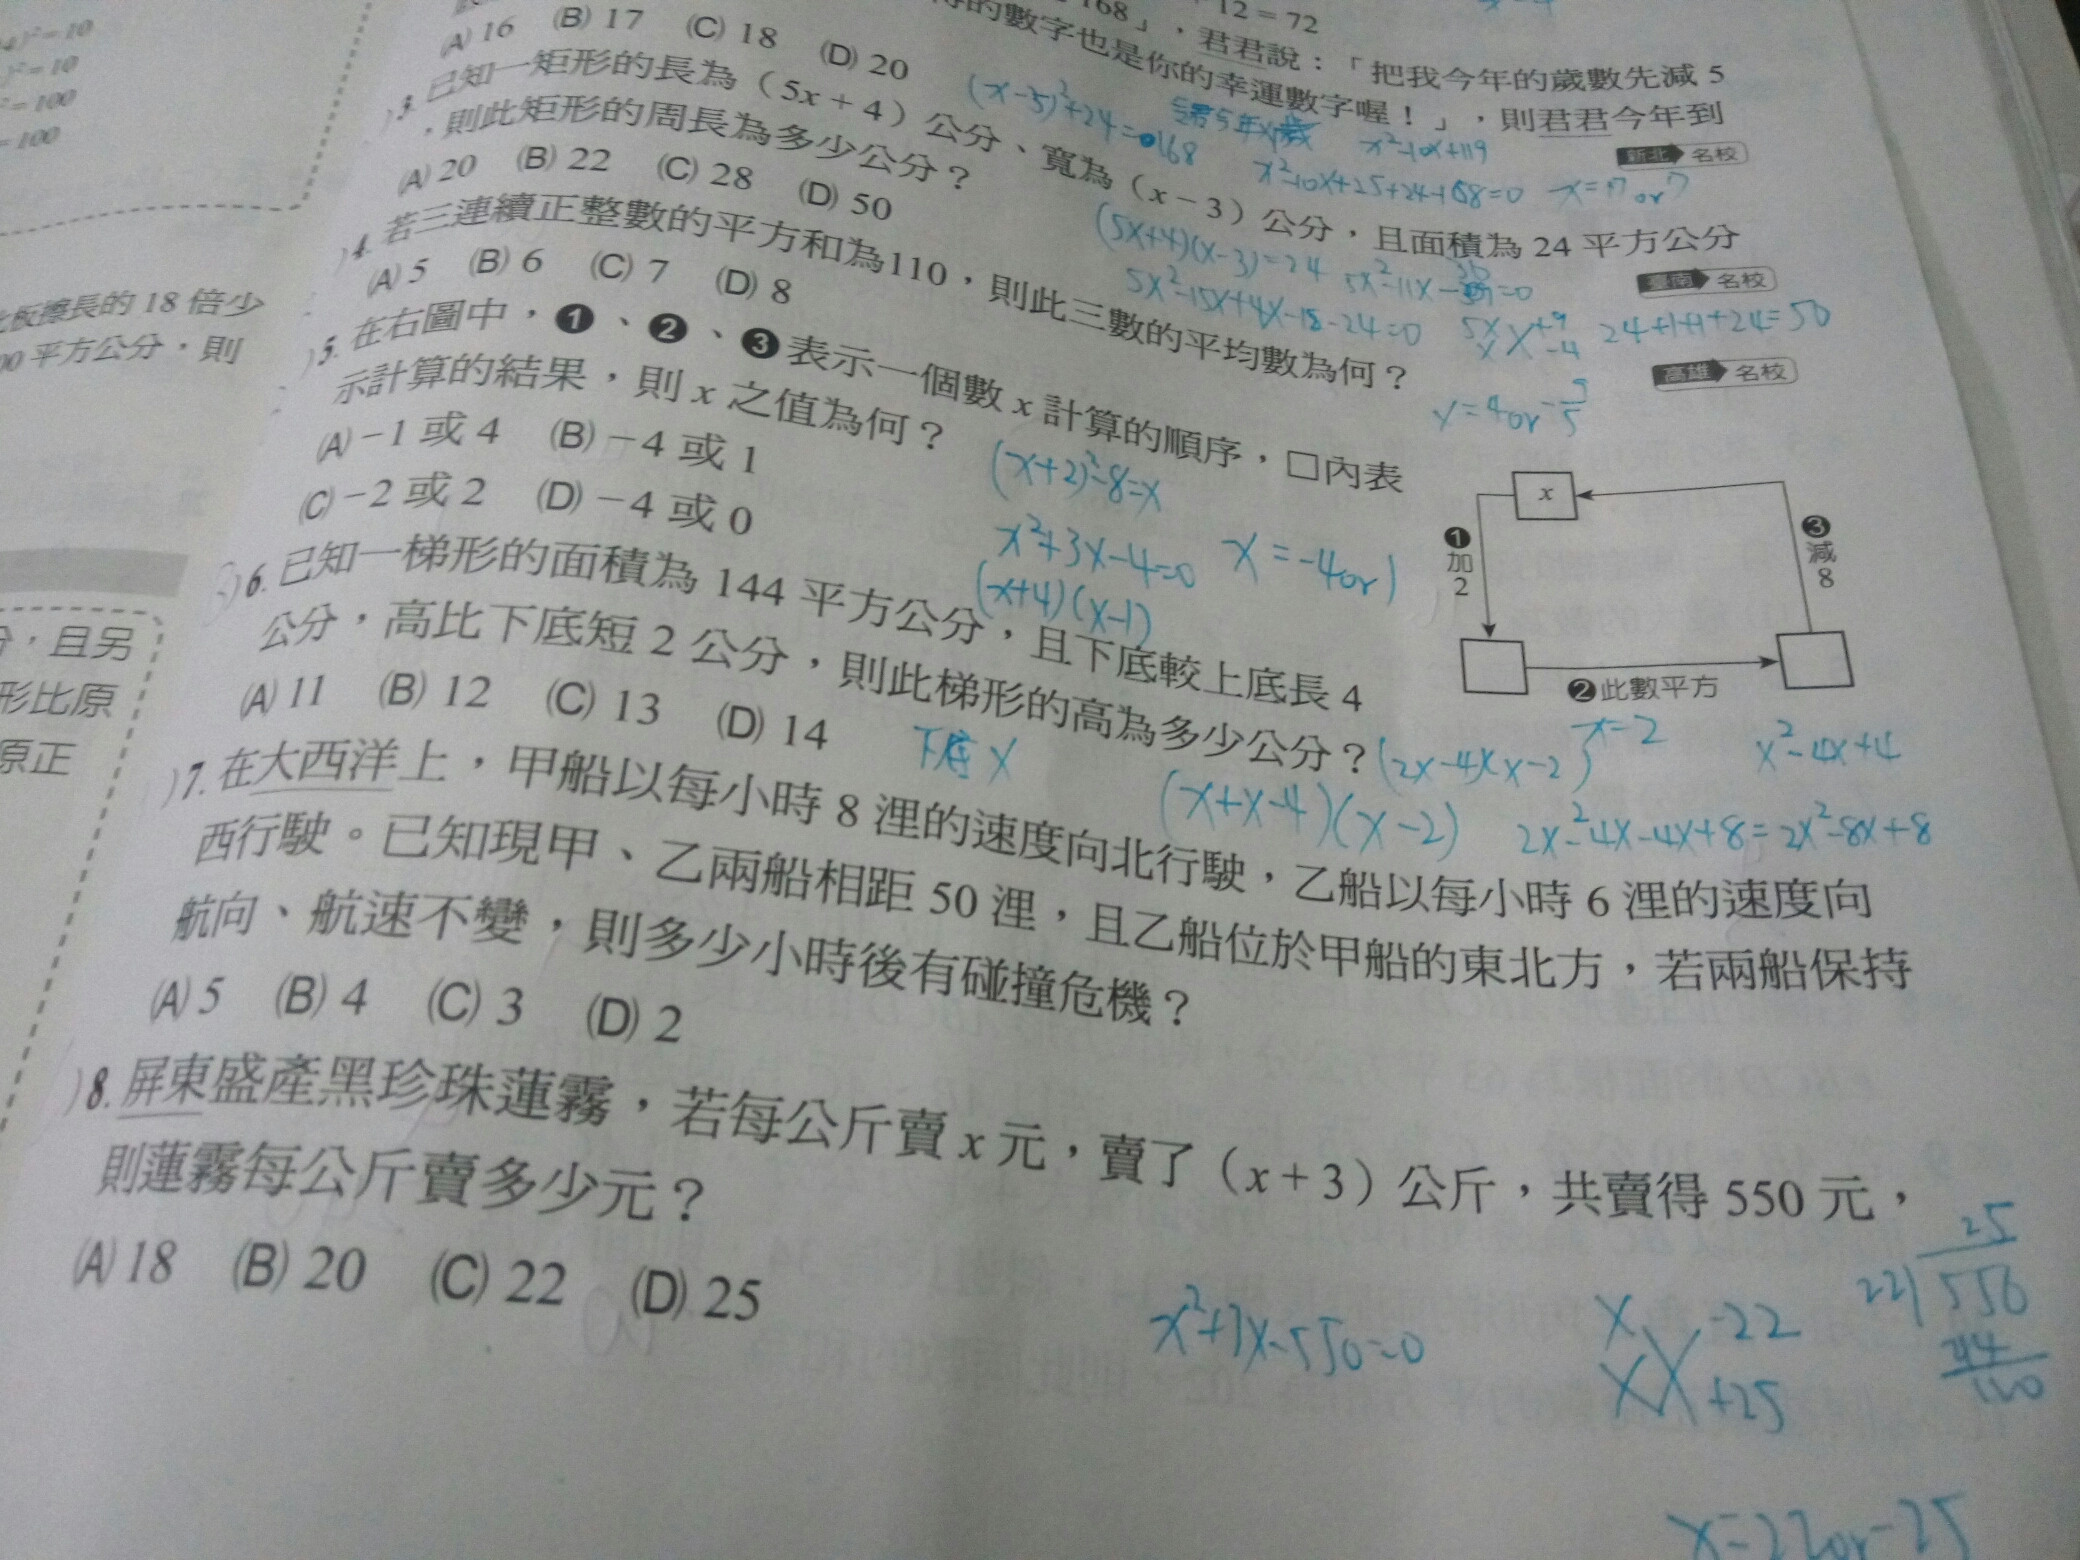 12 = 72
168」，君君說：「把我今年的歲數先減 5
的數字也是你的幸運數字喔！」，則君君今年到
新北 名校
(A) 16 (B) 17 (C) 18 (D) 20
(x-5)²+24=168
x²-10x+119
x²-10x+25+24-168=0 x=17 or 7
)3. 已知一矩形的長為（5x + 4）公分、寬為（x − 3）公分，且面積為 24 平方公分
，則此矩形的周長為多少公分？
臺南 名校
(A) 20 (B) 22 (C) 28 (D) 50
(5x+4)(x-3)=24
5x²-15x+4x-12-24=0
24+1+1+24=50
)4. 若三連續正整數的平方和為110，則此三數的平均數為何？
高雄 名校
(A) 5 (B) 6 (C) 7 (D) 8
)5. 在右圖中，❶、❷、❸表示一個數 x 計算的順序，□內表
示計算的結果，則 x 之值為何？
(A) −1 或 4 (B) −4 或 1
(C) −2 或 2 (D) −4 或 0
(x+2)²-8=x
x²+3x-4=0 x=-4 or 1
(x+4)(x-1)
x
❶加2
❷此數平方
❸減8
)6. 已知一梯形的面積為 144 平方公分，且下底較上底長 4
公分，高比下底短 2 公分，則此梯形的高為多少公分？
(A) 11 (B) 12 (C) 13 (D) 14
下底 x
(2x-4)(x-2)
x=2
x²-4x+4
(x+x-4)(x-2)
2x²-4x-4x+8=2x²-8x+8
)7. 在大西洋上，甲船以每小時 8 浬的速度向北行駛，乙船以每小時 6 浬的速度向
西行駛。已知現甲、乙兩船相距 50 浬，且乙船位於甲船的東北方，若兩船保持
航向、航速不變，則多少小時後有碰撞危機？
(A) 5 (B) 4 (C) 3 (D) 2
)8. 屏東盛產黑珍珠蓮霧，若每公斤賣 x 元，賣了（x + 3）公斤，共賣得 550 元，
則蓮霧每公斤賣多少元？
(A) 18 (B) 20 (C) 22 (D) 25
x²+3x-550=0
x -22
x +25
25
22)550
44
110
x=22 or -25
板擦長的 18 倍少
00 平方公分，則
，且另
形比原
原正
)²=10
)²=10
²=100
=100